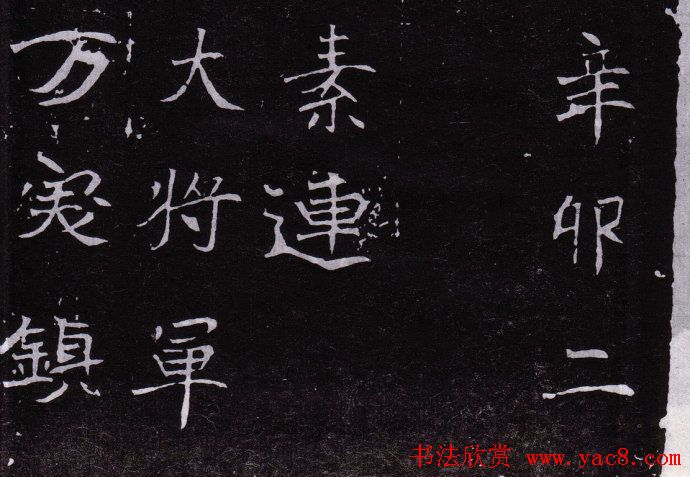 辛卯二
素連
大将軍
万鎮
书法欣赏 www.yac8.com